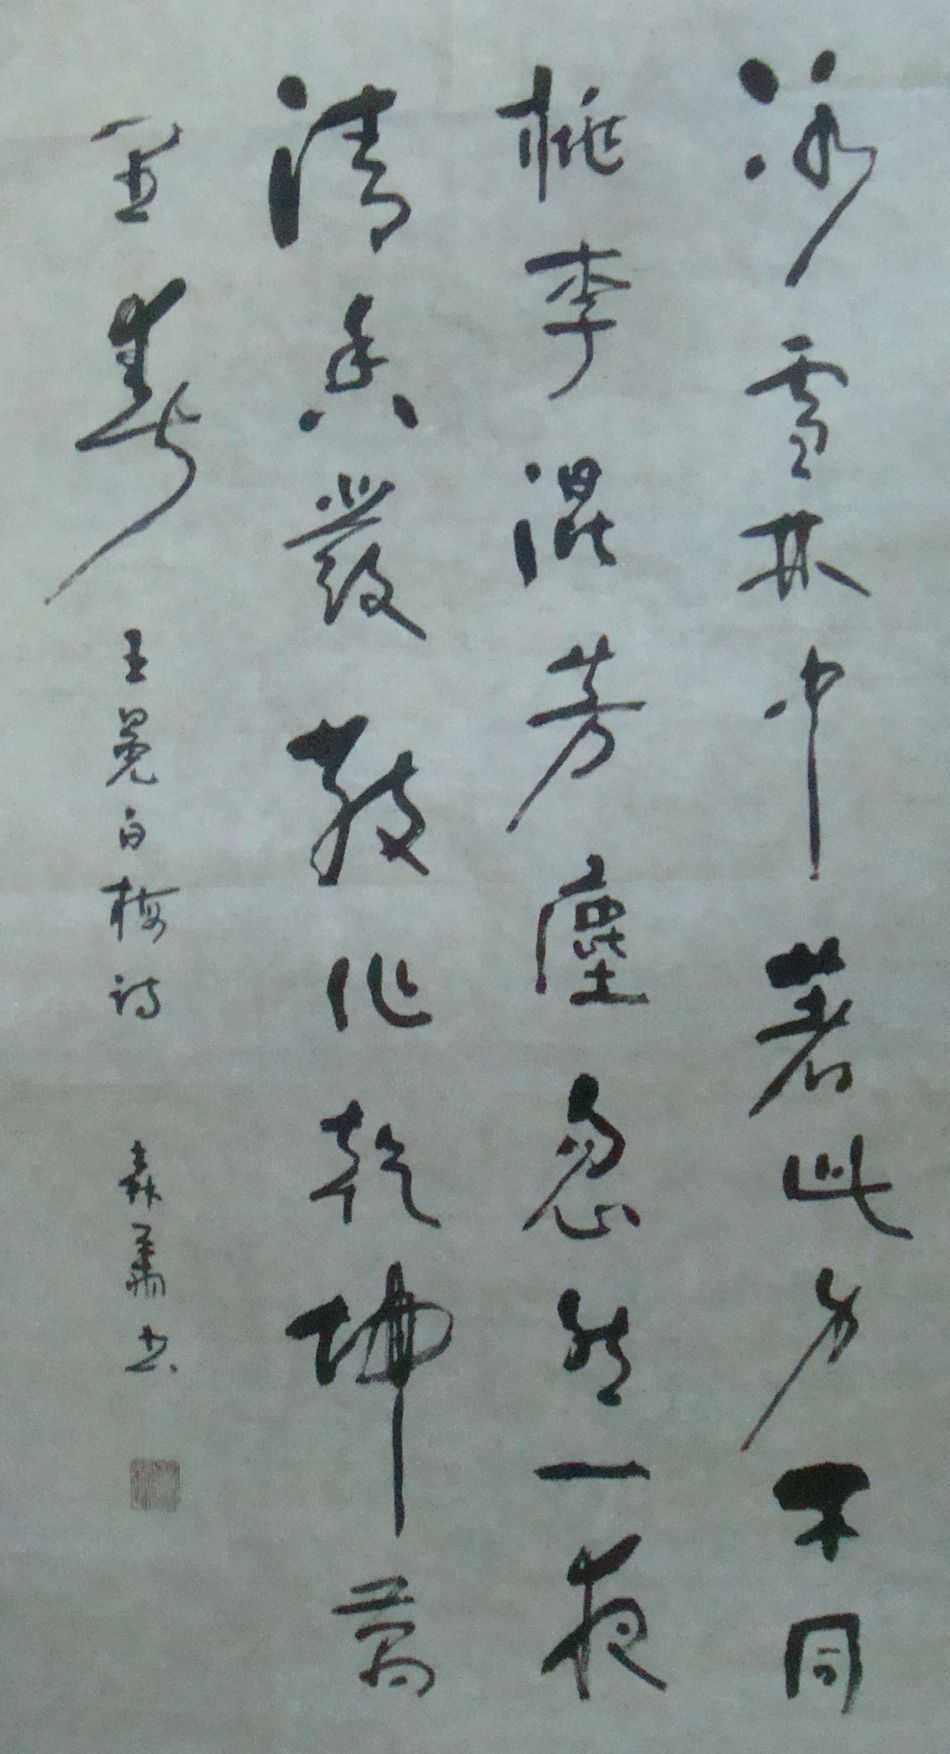 冰雪林中著此身不同
桃李混芳塵忽然一夜
清香發散作乾坤萬
里春
王冕白梅詩
书